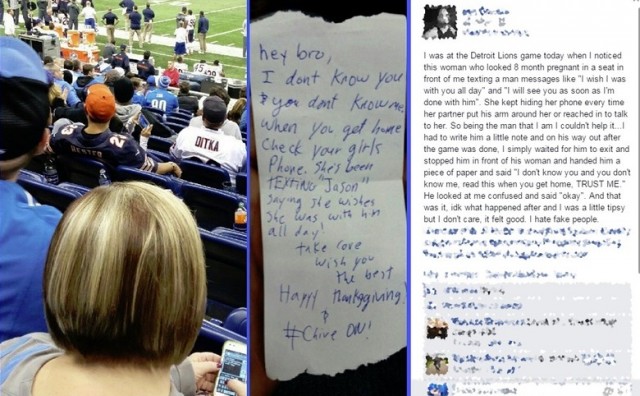 HESTER
DITKA
hey bro,
I dont know you
& you dont know me
when you get home
Check your girls
Phone. She's been
TEXTING "Jason"
Saying she wishes
She was with him
all day!
take care
wish you
the best
Happy thanksgiving!
&
#Chive ON!
I was at the Detroit Lions game today when I noticed
this woman who looked 8 month pregnant in a seat in
front of me texting a man messages like "I wish I was
with you all day" and "I will see you as soon as I'm
done with him". She kept hiding her phone every time
her partner put his arm around her or reached in to talk
to her. So being the man that I am I couldn't help it...I
had to write him a little note and on his way out after
the game was done, I simply waited for him to exit and
stopped him in front of his woman and handed him a
piece of paper and said "I don't know you and you don't
know me, read this when you get home, TRUST ME."
He looked at me confused and said "okay". And that
was it, idk what happened after and I was a little tipsy
but I don't care, it felt good. I hate fake people.